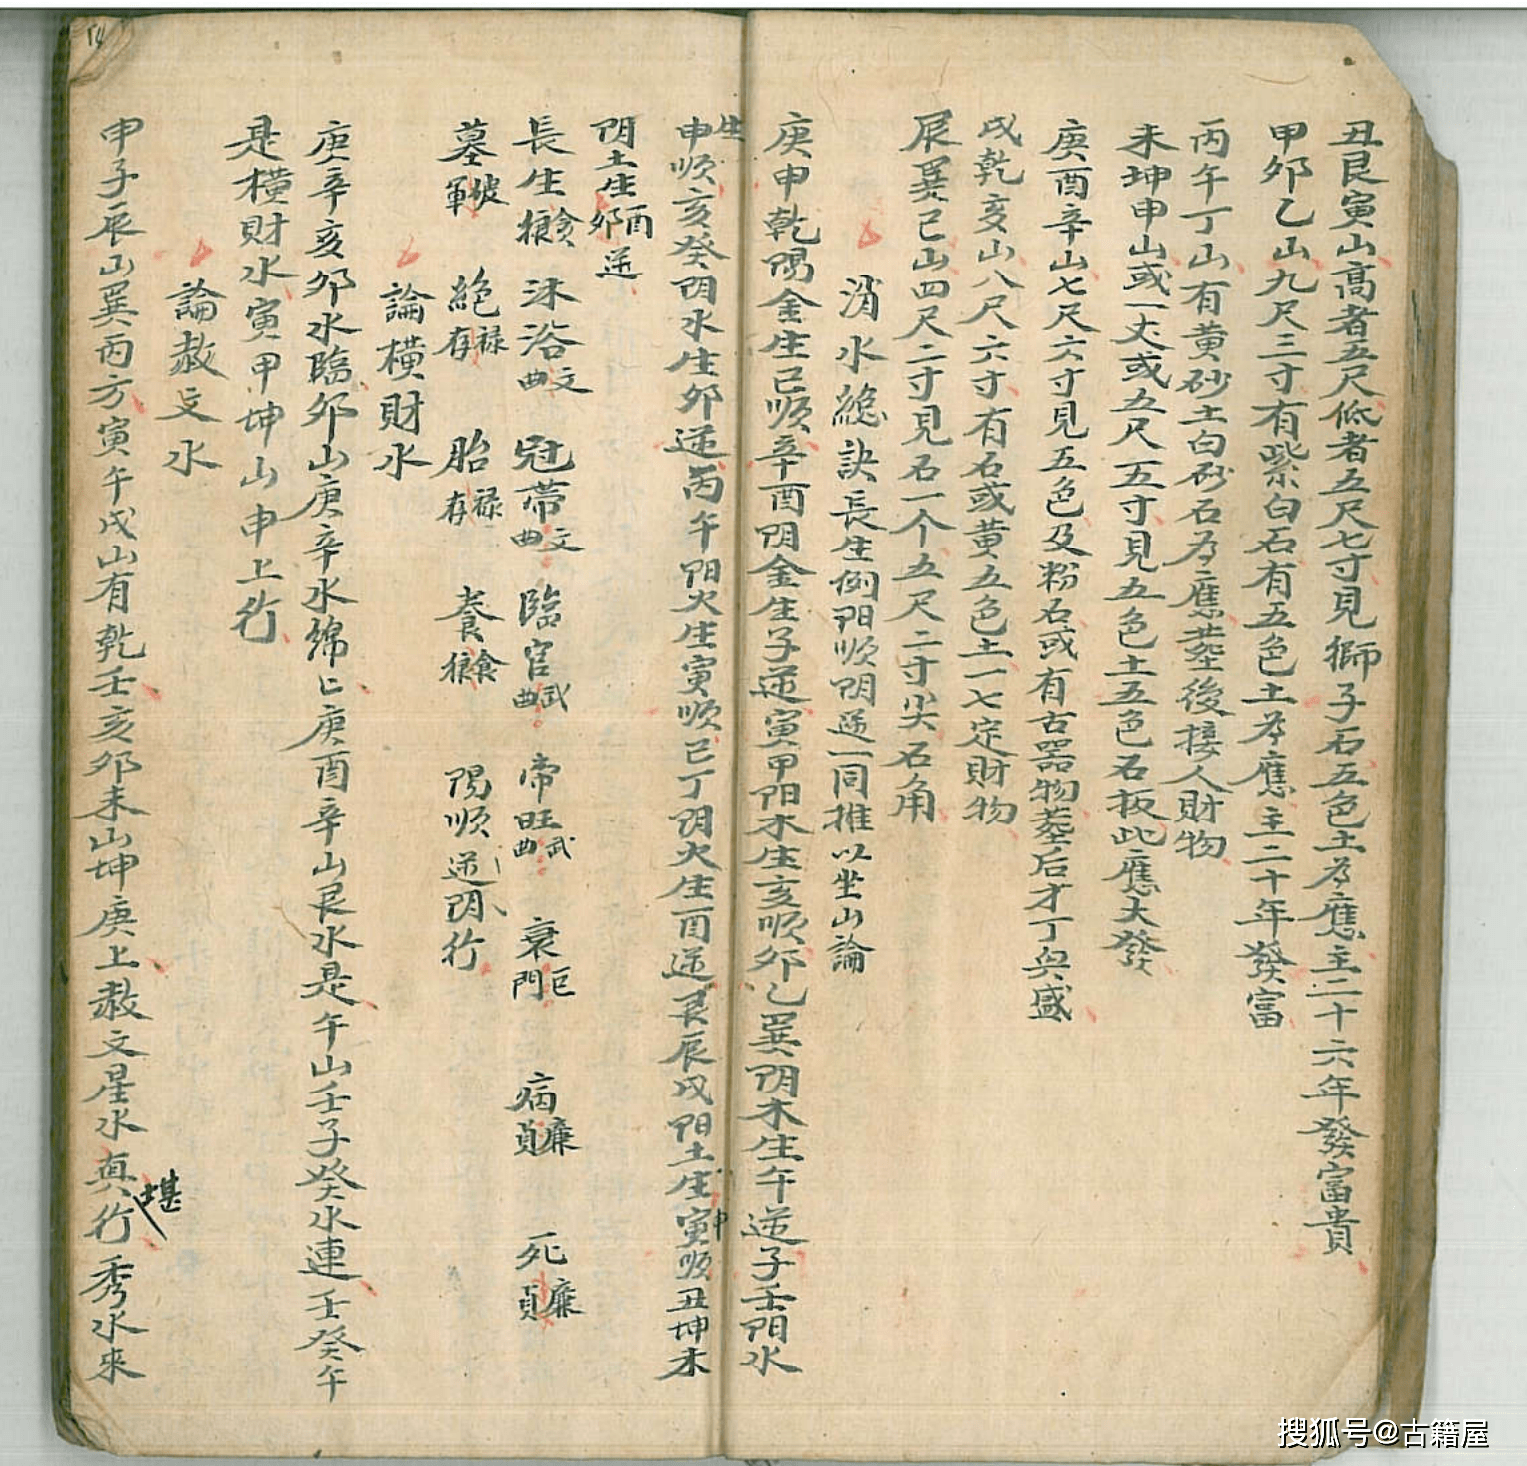 丑艮寅山高者五尺低者五尺七寸見獅子石五色土為應主二十六年發富貴
甲夘乙山九尺三寸有紫白石有五色土為應主二十年發富
丙午丁山有黄砂土白砂石為應塟後接人財物
未坤申山或一丈或五尺五寸見五色土五色石板此應大發
庚酉辛山七尺六寸見五色及粉石或有古器物塟后才丁興盛
戌乾亥山八尺六寸有石或黄五色土一七定財物
辰巽巳山四尺二寸見石一个五尺二寸尖石角
消水總訣長生例阳順阴逆一同推以坐山論
庚申乾陽金生巳順辛酉阴金生子逆寅甲阳木生亥順夘乙巽阴木生午逆子壬阳水
生申順亥癸阴水生夘逆丙午阳火生寅順巳丁阴火生酉逆艮辰戌阳土生寅申順丑坤未
阴土生夘酉逆
長生貪狼 沐浴文曲 冠帶文曲 臨官武曲 帝旺武曲 衰巨門 病廉貞 死廉貞
墓破軍 絶禄存 胎禄存 養貪狼 陽順逆阴行
論横財水
庚辛亥夘水臨夘山庚辛水綿匕庚酉辛山艮水是午山壬子癸水連壬癸午
是横財水寅甲坤山申上行
論赦文水
申子辰山巽丙方寅午戌山有乾壬亥夘未山坤庚上赦文星水真堪行秀水來
54
搜狐号@古籍屋